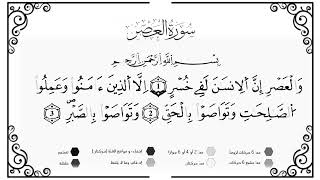 سُورَةُ الْعَصْرِ
بِسْمِ اللَّهِ الرَّحْمَٰنِ الرَّحِيمِ
وَالْعَصْرِ إِنَّ الْإِنسَٰنَ لَفِى خُسْرٍ ١ إِلَّا الَّذِينَ ءَامَنُوا وَعَمِلُوا
الصَّٰلِحَٰتِ وَتَوَاصَوْا بِالْحَقِّ ٢ وَتَوَاصَوْا بِالصَّبْرِ ٣